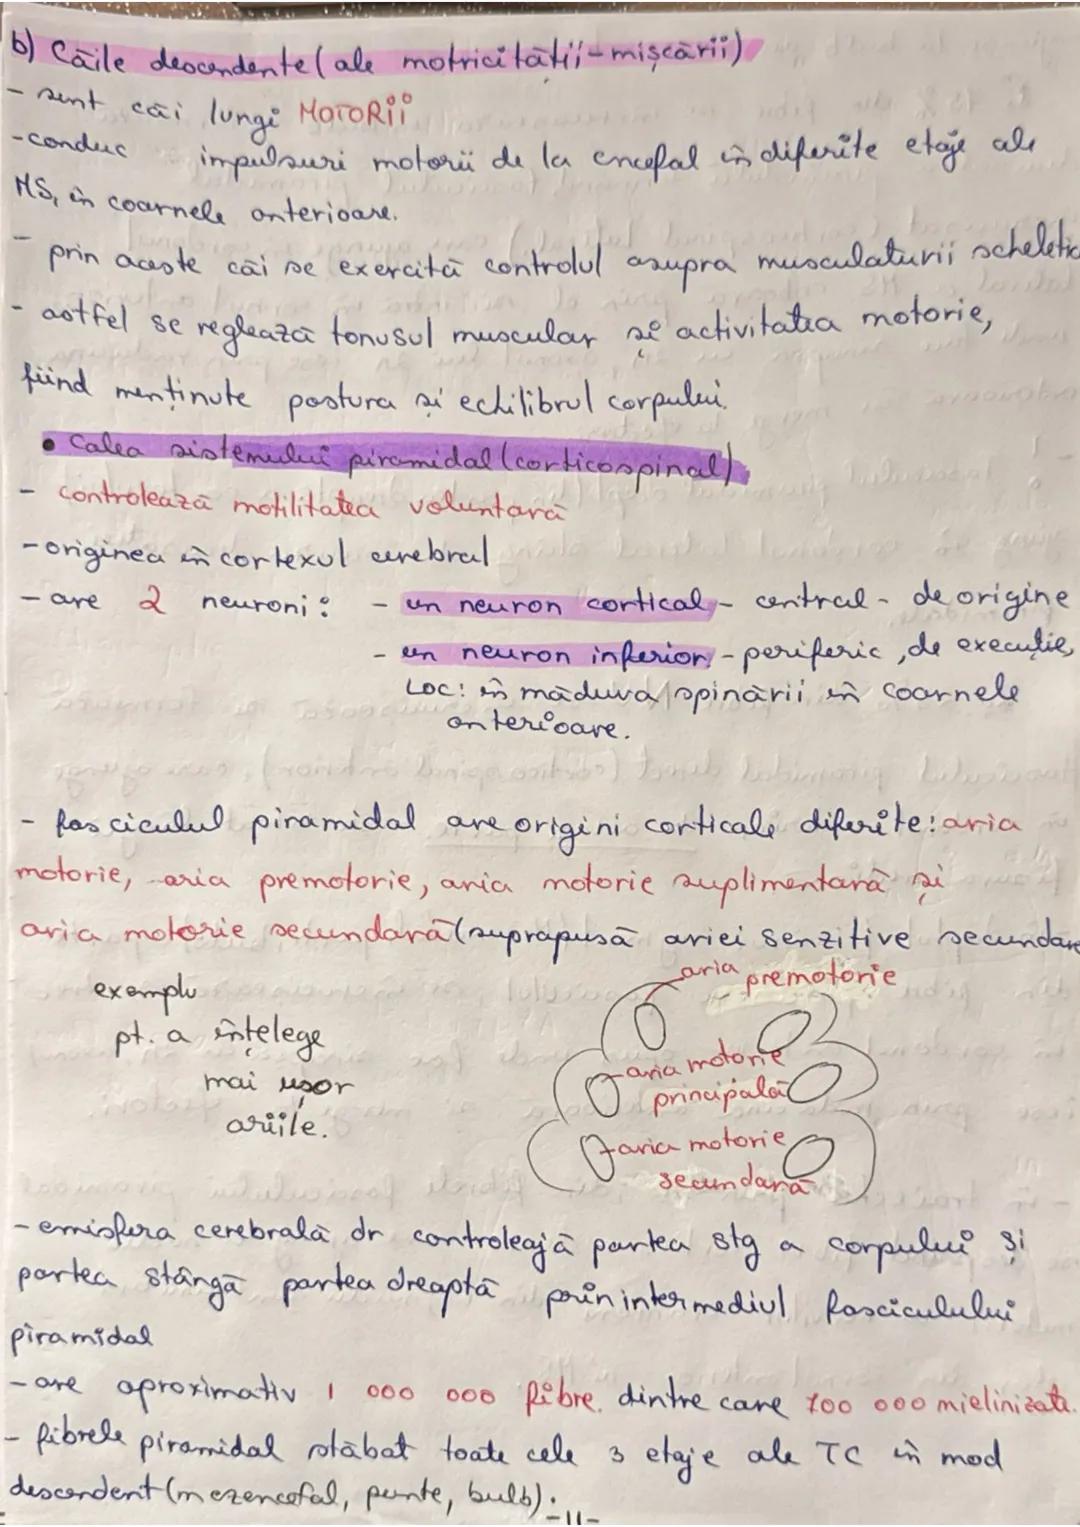 b) Căile descendente (ale motricității-mișcării)
- sunt căi lungi MOTORII
-conduc impulsuri motorii de la encefal în diferite etaje ale
MS, în coarnele anterioare.
- prin aceste căi se exercită controlul asupra musculaturii scheletic
- astfel se reglează tonusul muscular și activitatea motorie,
fiind menținute postura și echilibrul corpului.
• Calea sistemului piramidal (corticospinal)
- controlează motilitatea voluntară
-originea în cortexul cerebral
- are 2 neuroni: - un neuron cortical - central - de origine
- un neuron inferior, - periferic, de execuție,
Loc: în măduva spinării în coarnele
anterioare.
- fasciculul piramidal are origini corticale diferite: aria
motorie, aria premotorie, aria motorie suplimentară și
aria motorie secundară (suprapusă ariei senzitive secundare
exemplu
pt. a înțelege
mai ușor
ariile.
aria premotorie
aria motorie
principală
aria motorie
secundară
-emisfera cerebrală dr controleajă partea stg a corpului și
partea stângă partea dreaptă prin intermediul fasciculului
piramidal
-are aproximativ 1 000 000 fibre. dintre care 700 000 mielinizate.
- fibrele piramidal stăbat toate cele 3 etaje ale TC în mod
descendent (mezencefal, punte, bulb).
-11-